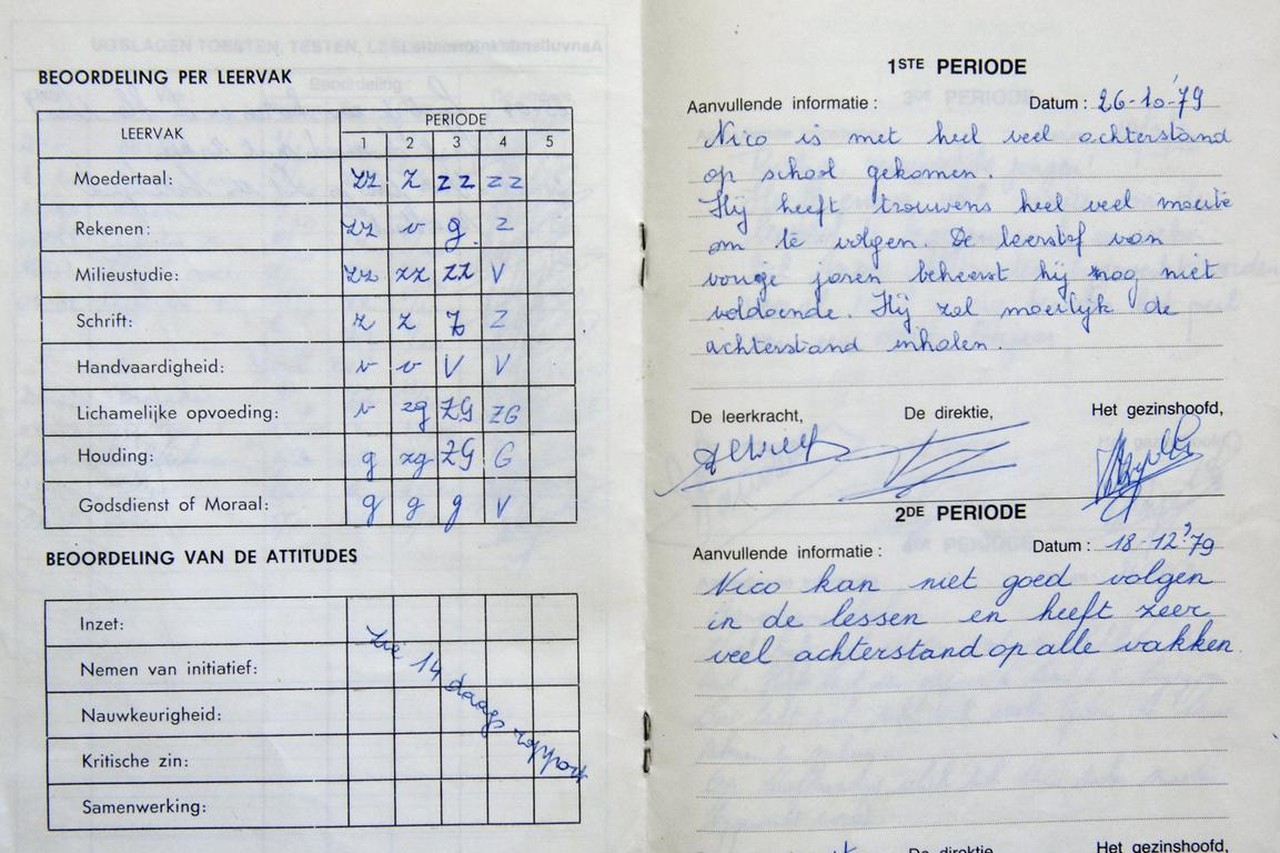 BEOORDELING PER LEERVAK
LEERVAK PERIODE
1 2 3 4 5
Moedertaal: zz z zz zz
Rekenen: zz v g. z
Milieustudie: zz zz zz V
Schrift: z z z z
Handvaardigheid: v v V V
Lichamelijke opvoeding: v zg ZG ZG
Houding: g zg ZG G
Godsdienst of Moraal: g g g V
BEOORDELING VAN DE ATTITUDES
Inzet:
Nemen van initiatief:
Nauwkeurigheid:
Kritische zin:
Samenwerking:
zie 14 daags rapport
1STE PERIODE
Aanvullende informatie: Datum: 26-10-'79
Nico is met heel veel achterstand
op school gekomen.
Hij heeft trouwens heel veel moeite
om te volgen. De leerstof van
vorige jaren beheerst hij nog niet
voldoende. Hij zal moeilijk de
achterstand inhalen.
De leerkracht, De direktie, Het gezinshoofd,
2DE PERIODE
Aanvullende informatie: Datum: 18-12'79
Nico kan niet goed volgen
in de lessen en heeft zeer
veel achterstand op alle vakken.
De direktie, Het gezinshoofd,